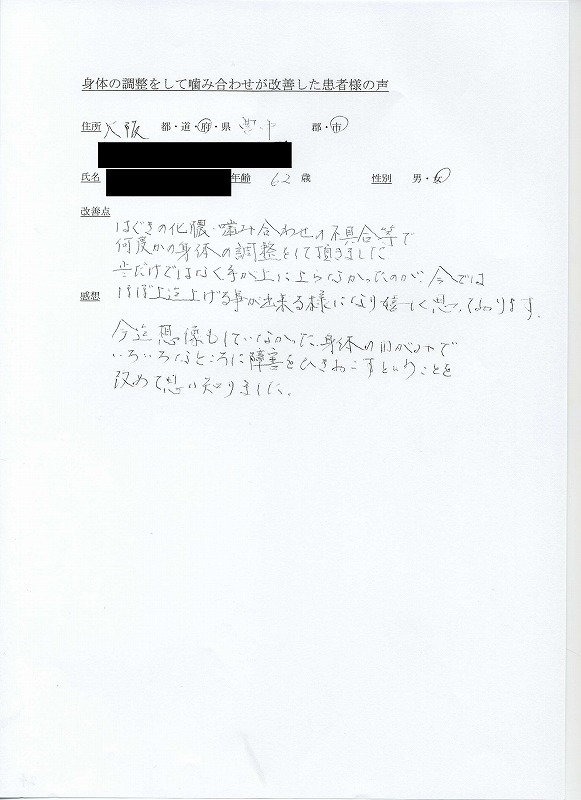 身体の調整をして噛み合わせが改善した患者様の声
住所 大阪 都・道・府・県 豊中 郡・市
氏名 年齢 62 歳 性別 男・女
改善点
はぐきの化膿・噛み合わせの不具合等で
何度かの身体の調整をして頂きました
歯だけではなく手が上に上らなかったのが、今では
感想 ほぼ上迄上げる事が出来る様になり嬉しく思っております。
今迄想像もしていなかった身体のゆがみで
いろいろなところに障害をひきおこすということを
改めて思い知りました。